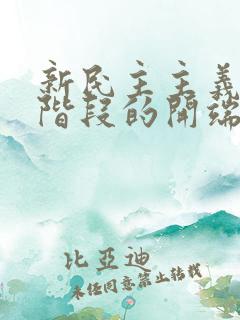 新民主主義
階段的開端
比亞迪
未經同意禁止轉載